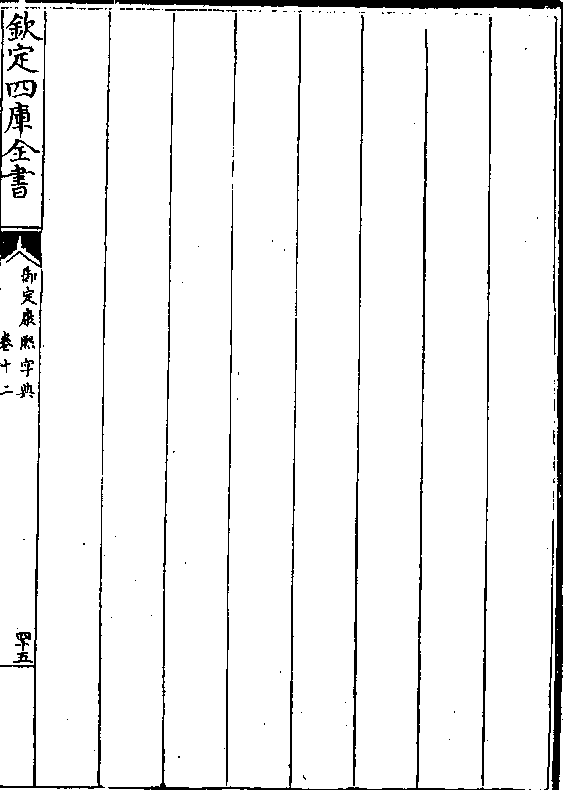 欽定四庫全書
御定康熙字典
卷十二
四十五